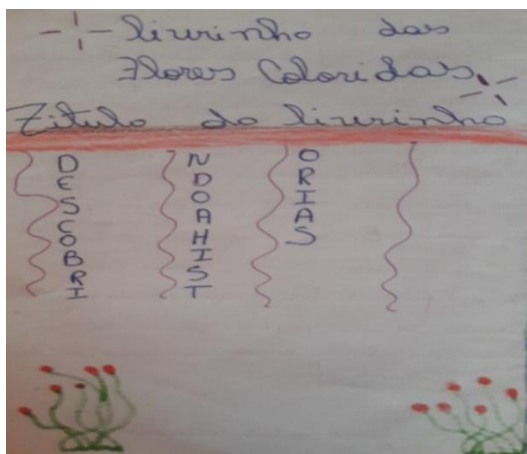 livrinho das
Flores Coloridas
Titulo do livrinho
DESCOBRI
NDOAHIST
ORIAS